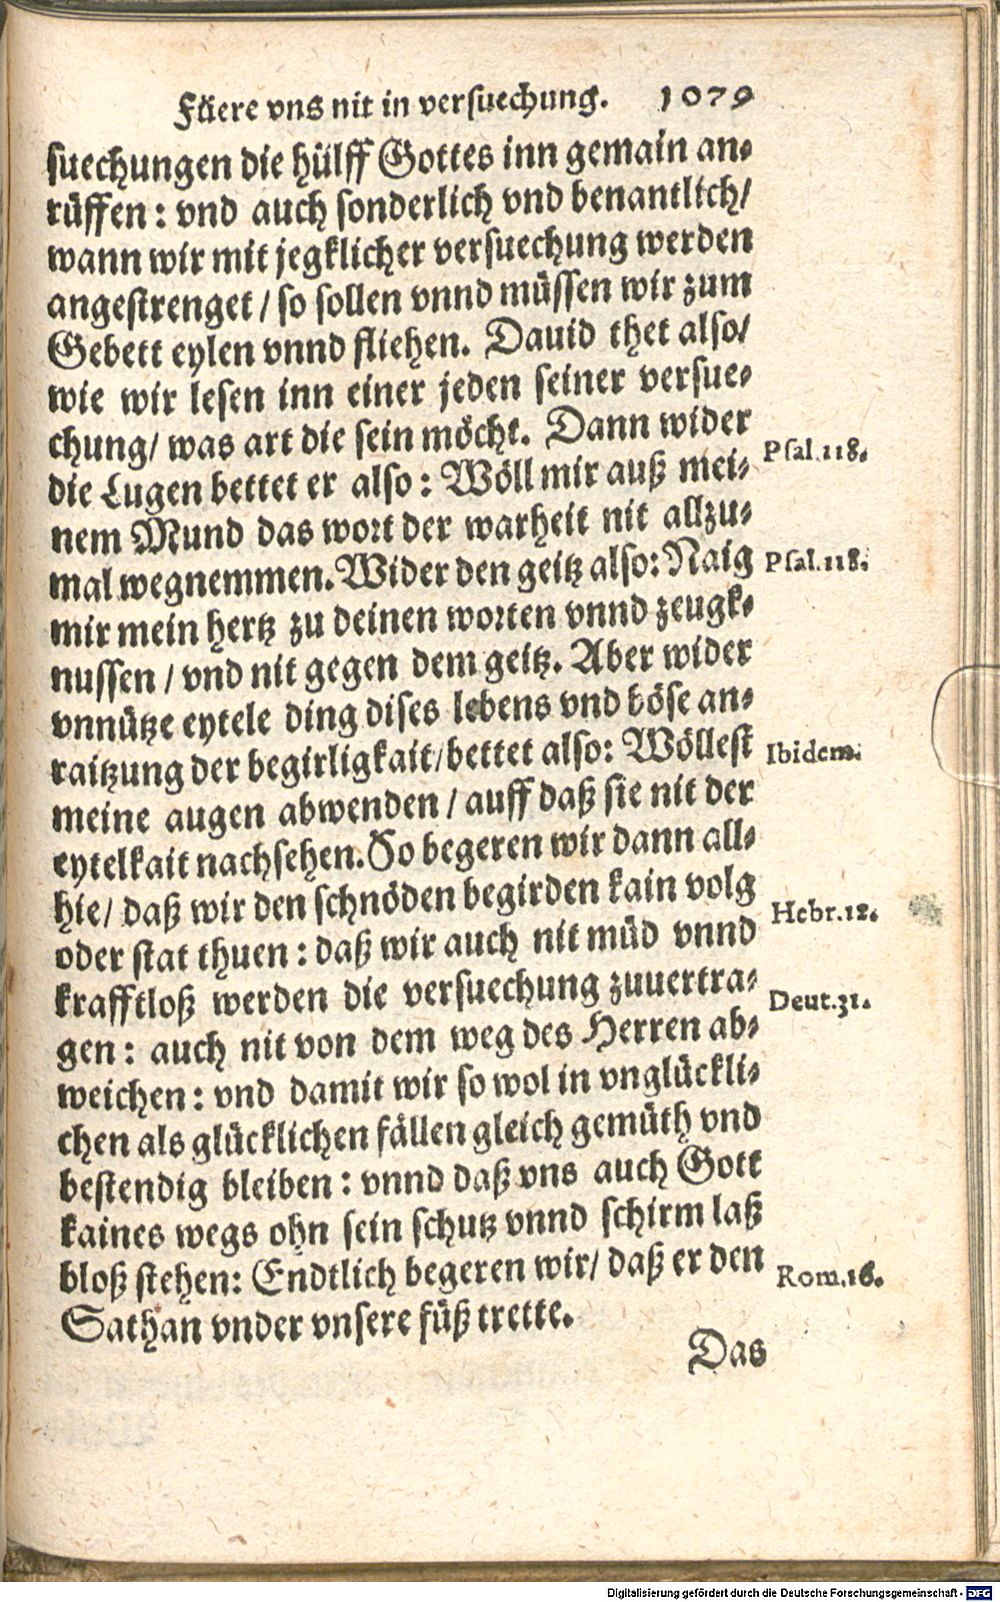 Füere vns nit in versuechung. 1079
suechungen die hülff Gottes inn gemain an-
rüffen: vnd auch sonderlich vnd benantlich/
wann wir mit jegklicher versuechung werden
angestrenget / so sollen vnnd müssen wir zum
Gebett eylen vnnd fliehen. Dauid thet also/
wie wir lesen inn einer jeden seiner versue-
chung/ was art die sein möcht. Dann wider
Psal.118.
die Lugen bettet er also: Wöll mir auß mei-
nem Mund das wort der warheit nit allzu-
mal wegnemmen. Wider den geitz also: Naig
Psal.118.
mir mein hertz zu deinen worten vnnd zeugk-
nussen / vnd nit gegen dem geitz. Aber wider
vnnütze eytele ding dises lebens vnd böse an-
raitzung der begirligkait/bettet also: Wöllest
Ibidem.
meine augen abwenden / auff daß sie nit der
eytelkait nachsehen. So begeren wir dann all-
hie/ daß wir den schnöden begirden kain volg
Hebr.12.
oder stat thuen: daß wir auch nit müd vnnd
krafftloß werden die versuechung zuuertra-
Deut.31.
gen: auch nit von dem weg des Herren ab-
weichen: vnd damit wir so wol in vnglückli-
chen als glücklichen fällen gleich gemüth vnd
bestendig bleiben: vnnd daß vns auch Gott
kaines wegs ohn sein schutz vnnd schirm laß
bloß stehen: Endtlich begeren wir/ daß er den
Rom.16.
Sathan vnder vnsere füß trette.
Das
Digitalisierung gefördert durch die Deutsche Forschungsgemeinschaft - DFG